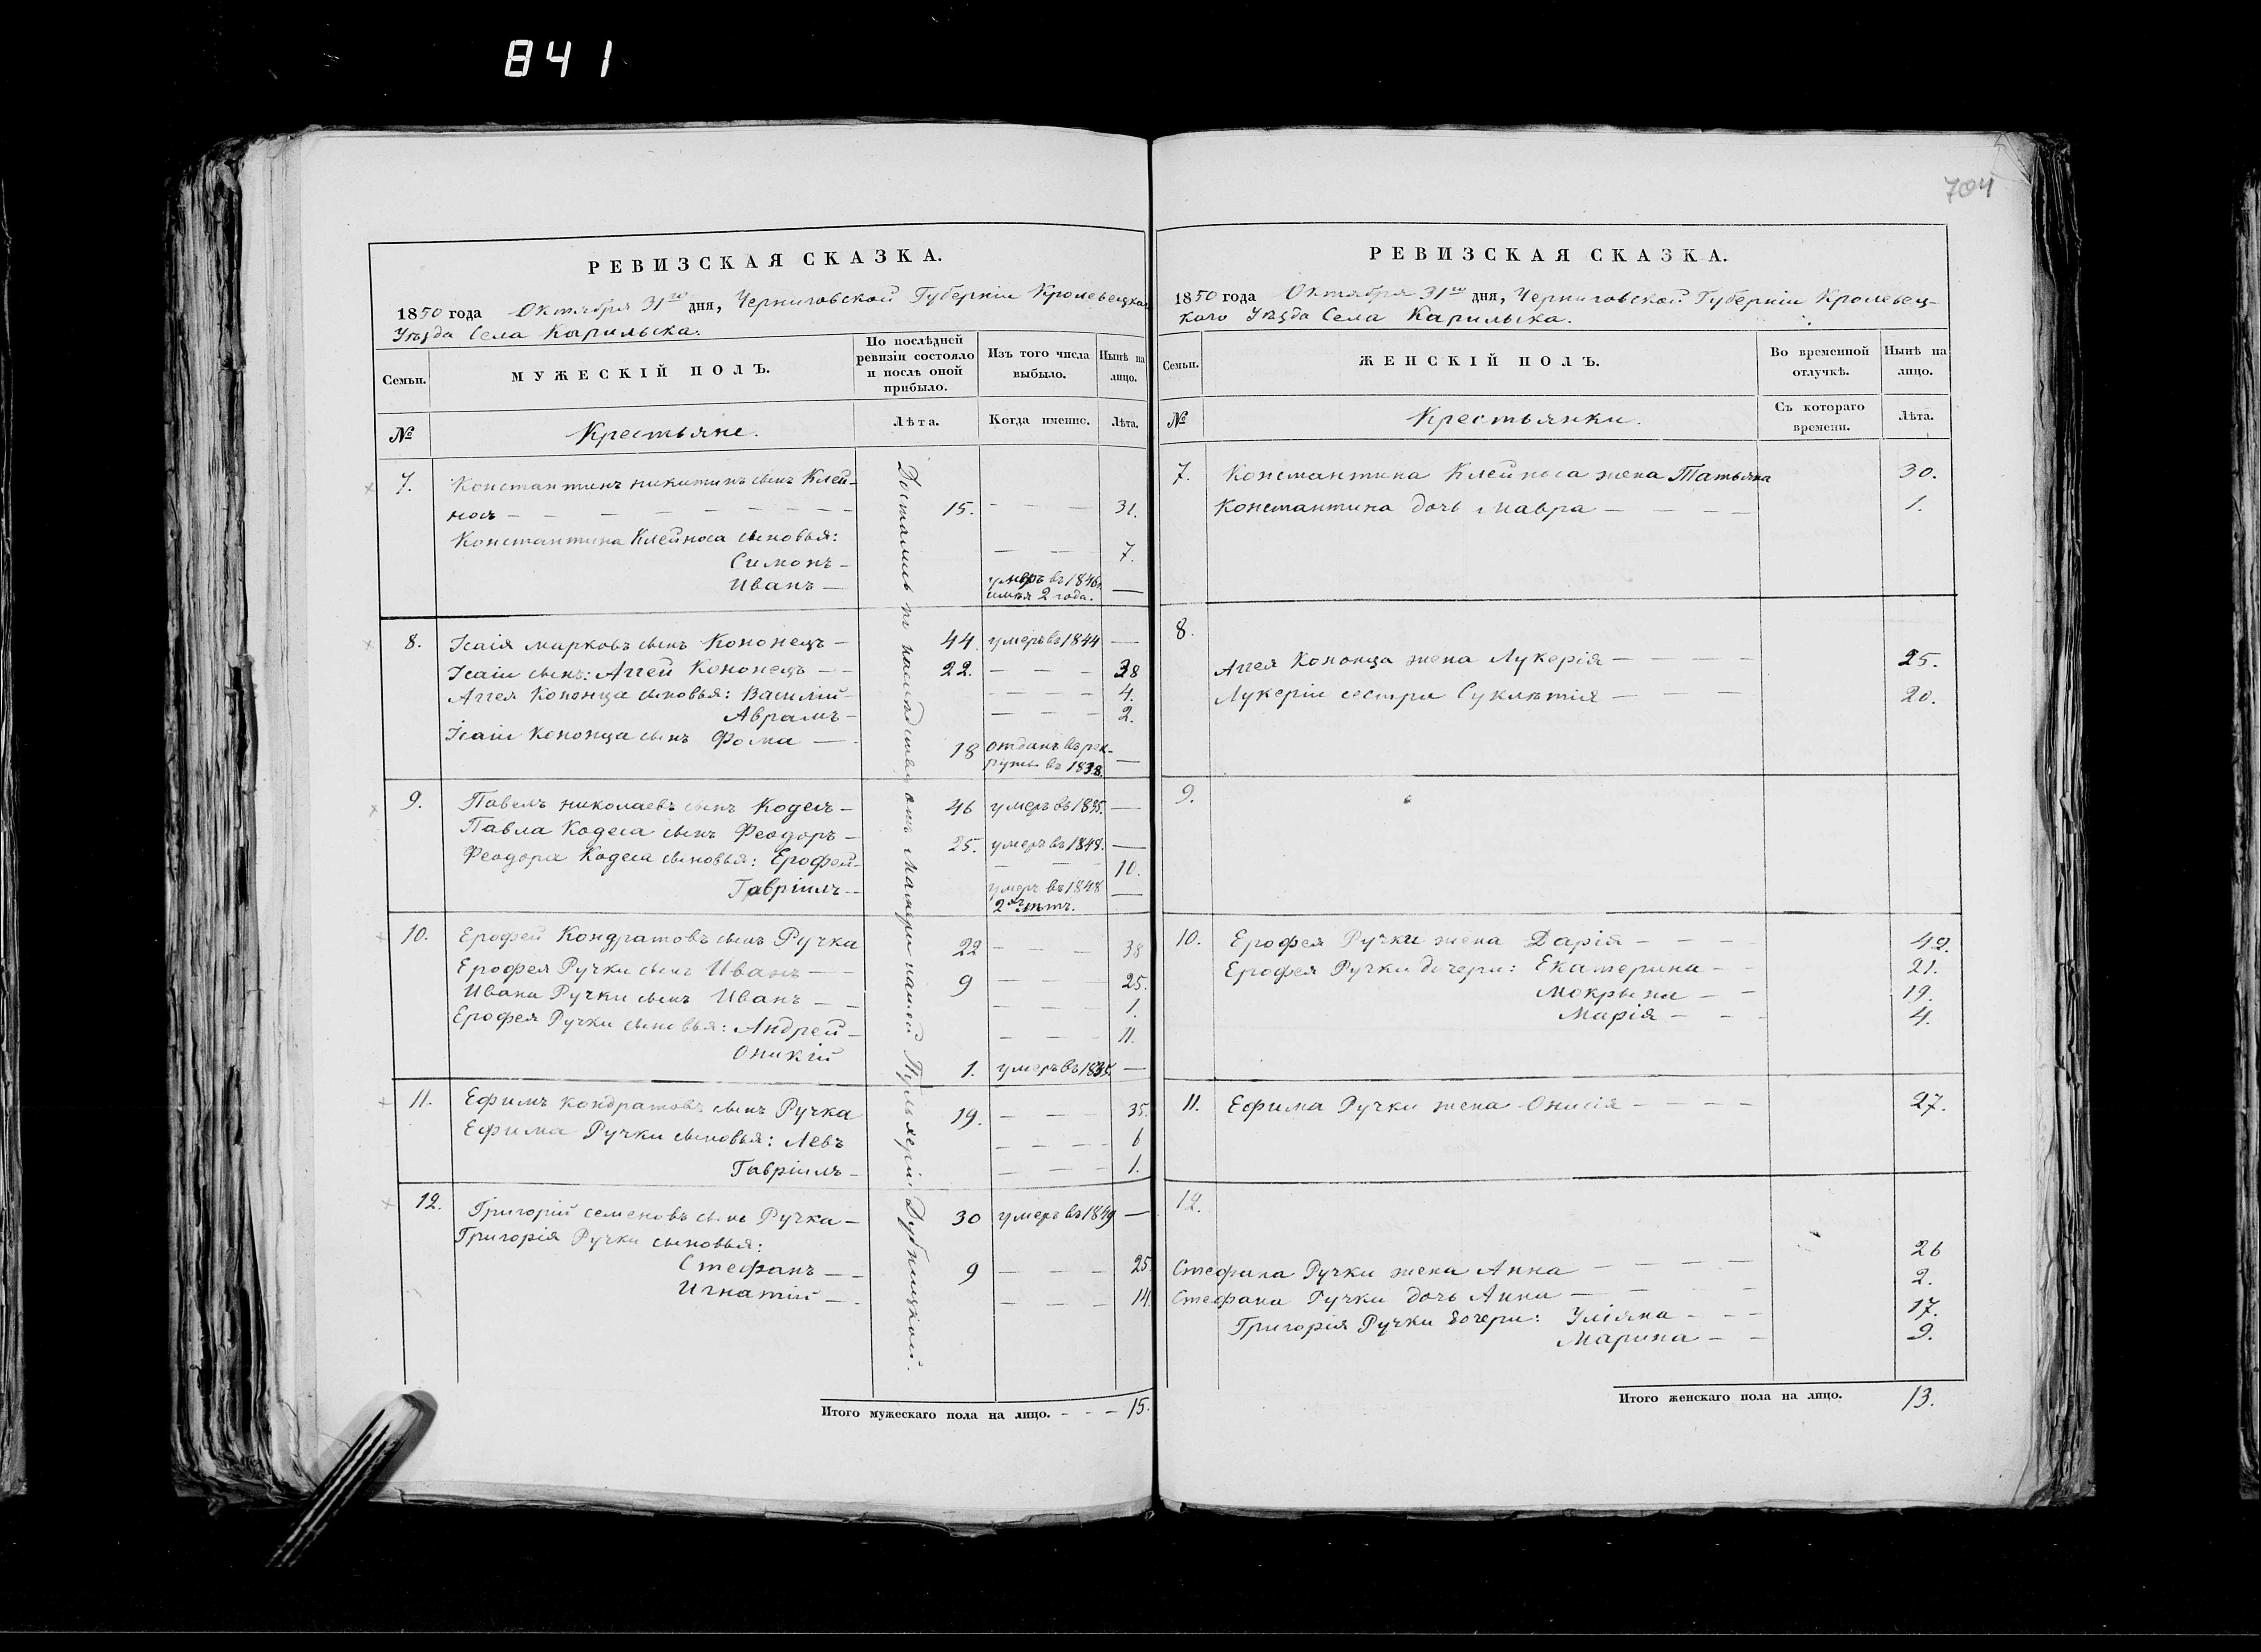 841
704
РЕВИЗСКАЯ СКАЗКА.
1850 года Октября 31го дня, Черниговской Губерніи Кролевецкаго
Уѣзда Села Карильска.
Семьи.
МУЖЕСКІЙ ПОЛЪ.
По послѣдней ревизіи состояло и послѣ оной прибыло.
Изъ того числа выбыло.
Нынѣ на лицо.
№
Крестьяне.
Лѣта.
Когда именно.
Лѣта.
Досталиcь по наслѣдству отъ матери нашей Пульхеріи Дублицкой.
7. Константинъ никитинъ сынъ Клей-
носъ — 15. — 31.
Константина Клейноса сыновья:
Симонъ — — 7.
Иванъ — умеръ въ 1846
имѣя 2 года. —
8. Ісаія марковъ сынъ Кононецъ — 44. умеръ въ 1844 —
Ісаіи сынъ: Аггей Кононецъ — 22. — 38
Аггея Кононца сыновья: Василій — — 4.
Аврамъ — — 2.
Ісаіи Кононца сынъ Фома — 18 отданъ въ рек-
руты въ 1838. —
9. Павелъ николаевъ сынъ Кодесъ — 46 умеръ въ 1835. —
Павла Кодеса сынъ Феодоръ — 25. умеръ въ 1848. —
Феодора Кодеса сыновья: Ерофей — — 10.
Гавріилъ — умеръ въ 1848
2хъ лѣтъ. —
10. Ерофей Кондратовъ сынъ Ручка 22 — 38
Ерофея Ручки сынъ Иванъ — 9 — 25.
Ивана Ручки сынъ Иванъ — — 1.
Ерофея Ручки сыновья: Андрей — — 11.
Оникій 1. умеръ въ 1835. —
11. Ефимъ кондратовъ сынъ Ручка 19. — 35.
Ефима Ручки сыновья: Левъ — 6
Гавріилъ — — 1.
12. Григорій семеновъ сынъ Ручка — 30 умеръ въ 1849 —
Григорія Ручки сыновья:
Стефанъ — 9 — 25.
Игнатій — — 14.
Итого мужескаго пола на лицо. - - - 15.
РЕВИЗСКАЯ СКАЗКА.
1850 года Октября 31го дня, Черниговской Губерніи Кролевец-
каго Уѣзда Села Карильска.
Семьи.
ЖЕНСКІЙ ПОЛЪ.
Во временной отлучкѣ.
Нынѣ на лицо.
№
Крестьянки.
Съ котораго времени.
Лѣта.
7. Константина Клейноса жена Татьяна 30.
Константина дочь Мавра — 1.
8.
Аггея Кононца жена Лукерія — 25.
Лукеріи сестра — 20.
9.
10. Ерофея Ручки жена Дарія — 42.
Ерофея Ручки дочери: Екатерина — 21.
Мокрына — 19.
Марія — 4.
11. Ефима Ручки жена Онисія — 27.
12.
Стефана Ручки жена Анна — 26
Стефана Ручки дочь Анна — 2.
Григорія Ручки дочери: Уліяна — 17.
Марина — 9.
Итого женскаго пола на лицо. 13.